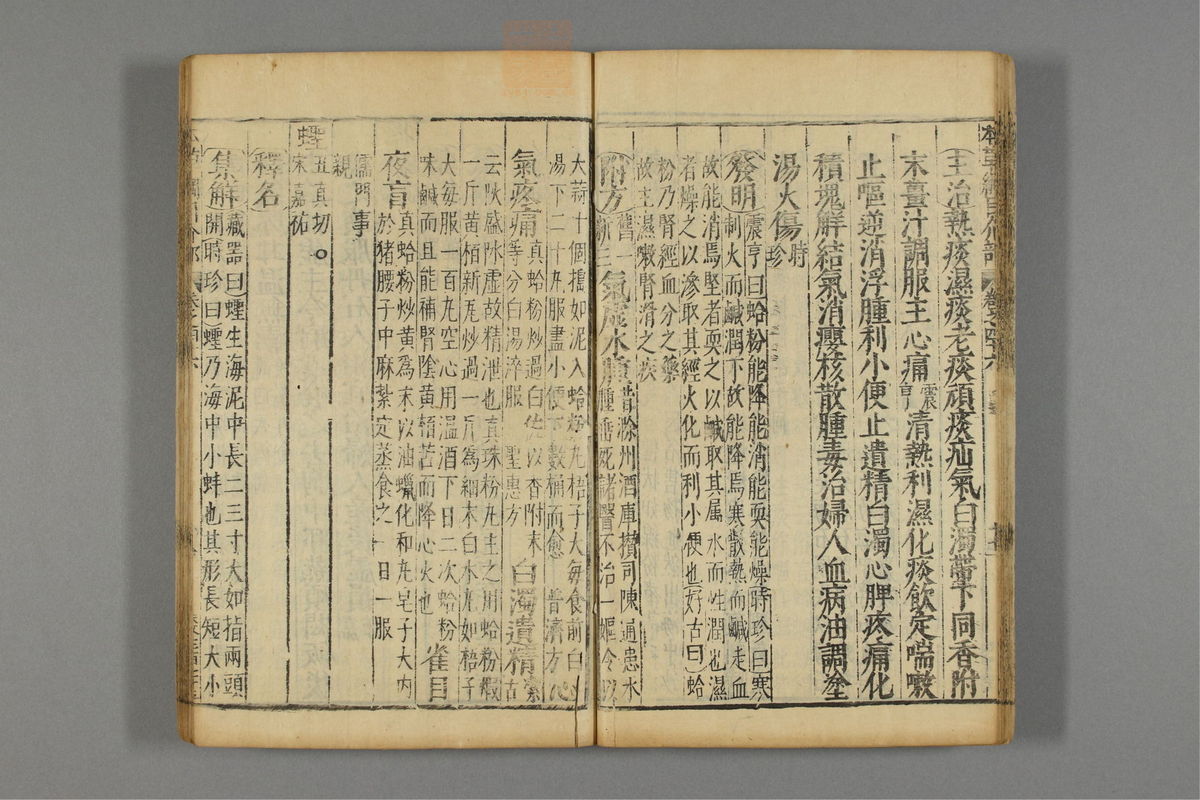 主治熱痰濕痰老痰頑痰疝氣白濁帶下同香附
末薑汁調服主心痛震亨清熱利濕化痰飲定喘嗽
止嘔逆消浮腫利小便止遺精白濁心脾疼痛化
積塊解結氣消癭核散腫毒治婦人血病油調塗
湯火傷時珍
發明震亨曰蛤粉能降能消能耎能燥時珍曰寒
制火而鹹潤下故能降焉寒散熱而鹹走血
故能消焉堅者耎之以鹹取其属水而性潤也濕
者燥之以滲取其經火化而利小便也好古曰蛤
粉乃腎經血分之藥
故主濕嗽腎滑之疾
附方舊一
新三氣虛水腫昔滁州酒庫攢司陳通患水
腫垂死諸醫不治一嫗令以
大蒜十個搗如泥入蛤粉丸梧子大每食前白
湯下二十丸服盡小便下數桶而愈普濟方心
氣疼痛真蛤粉炒過白佐以香附末
等分白湯淬服聖惠方白濁遺精潔古
云陽盛陰虛故精泄也真珠粉丸主之用蛤粉煅
一斤黄栢新瓦炒過一斤為細末白水丸如梧子
大每服一百丸空心用温酒下日二次蛤粉
味鹹而且能補腎陰黄栢苦而降心火也雀目
夜盲真蛤粉炒黃爲末以油蠟化和丸皂子大内
於猪腰子中麻紥定蒸食之一日一服
儒門事
親
蟶丑真切
宋嘉祐
釋名
集解藏器曰蟶生海泥中長二三寸大如指兩頭
開時珍曰蟶乃海中小蚌也其形長短大小